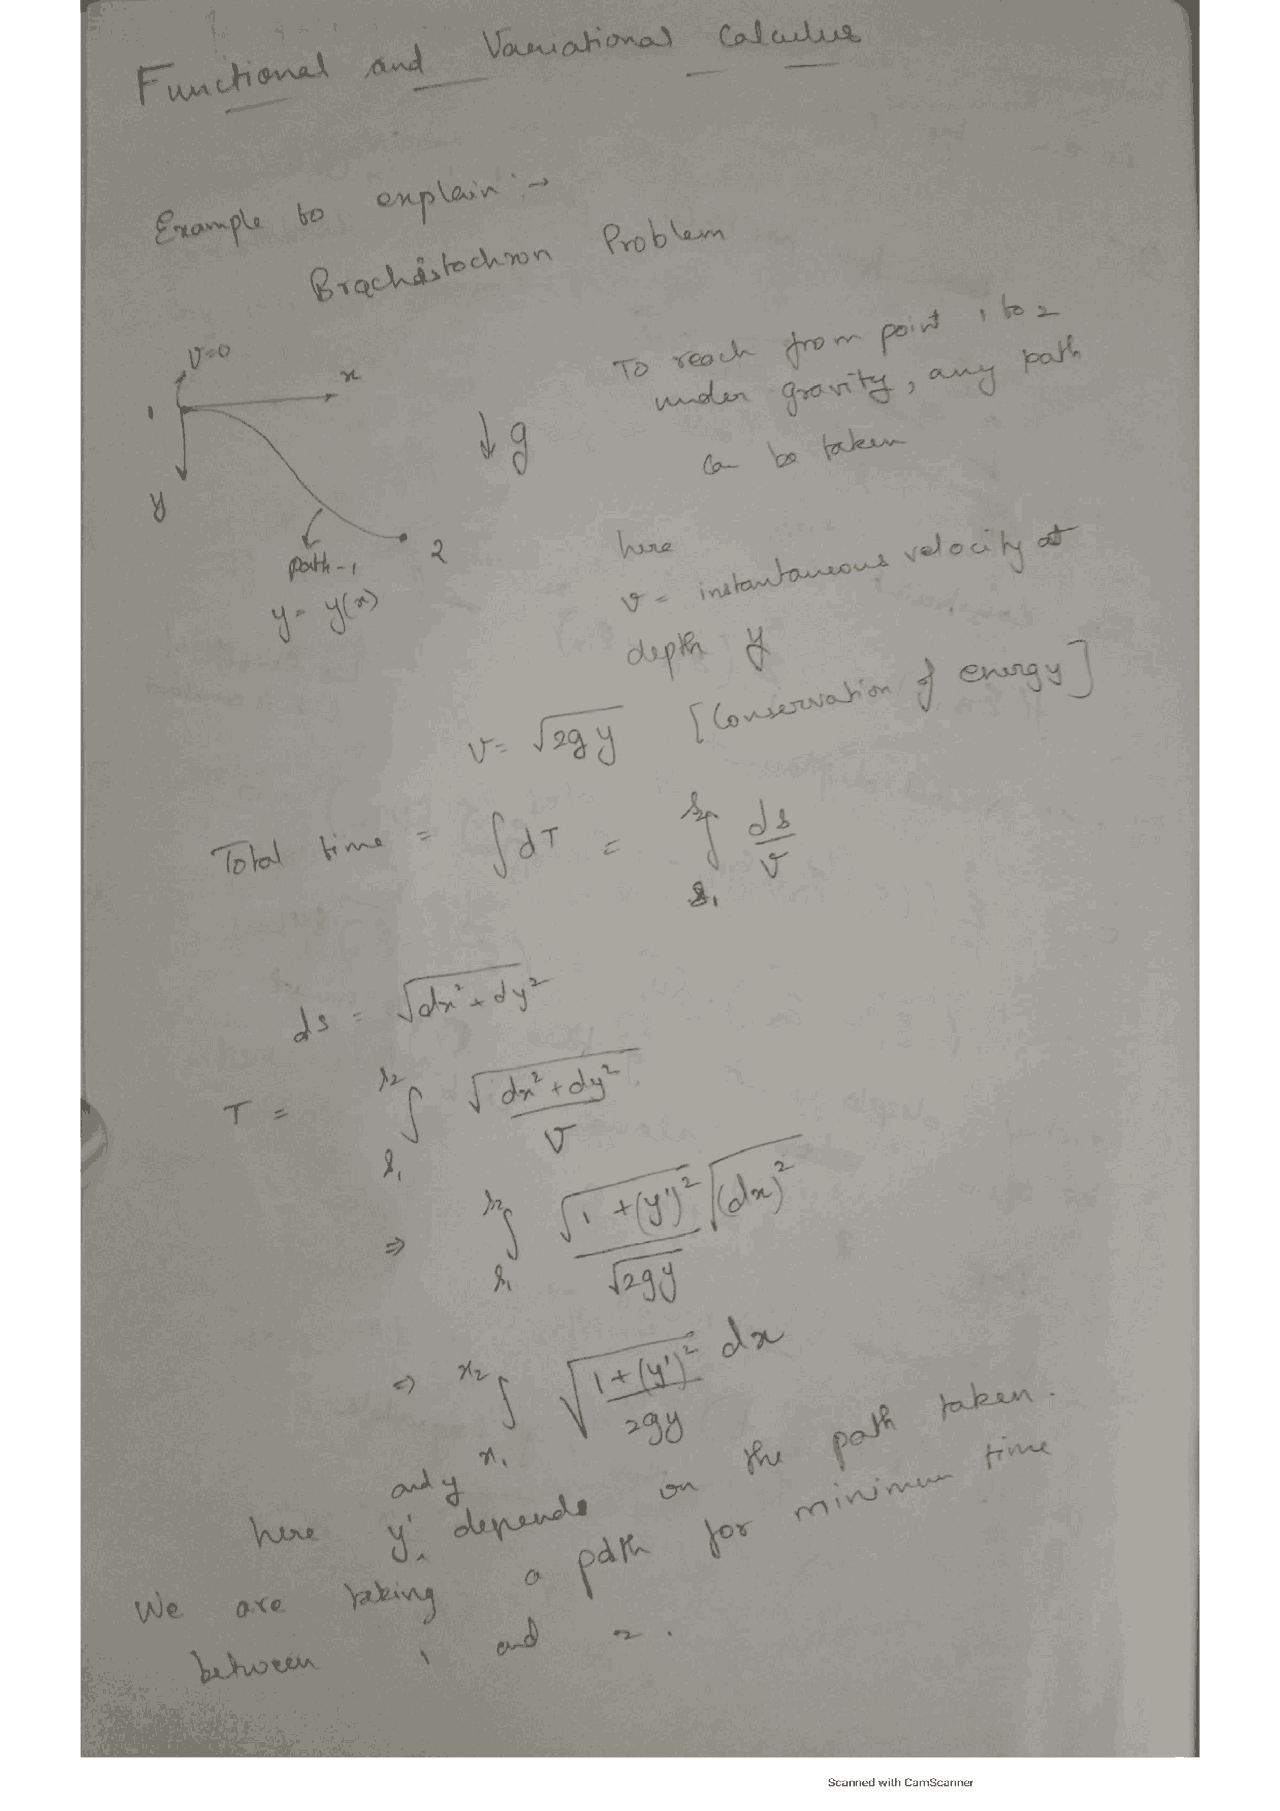 Functional and Variational Calculus
Example to explain :→
Brachistochron Problem
V=0
x
1
y
↓ g
path-1
2
y = y(x)
To reach from point 1 to 2
under gravity, any path
can be taken
here
v = instantaneous velocity at
depth y
v = √2gy [Conservation of energy]
Total time = ∫dT = ∫_{s1}^{s2} ds/v
ds = √dx²+dy²
T = ∫_{s1}^{s2} √dx²+dy² / v
⇒ ∫_{s1}^{s2} √1+(y')² √(dx)² / √2gy
⇒ ∫_{x1}^{x2} √(1+(y')² / 2gy) dx
here y' and y depends on the path taken.
We are taking a path for minimum time
between 1 and 2.
Scanned with CamScanner